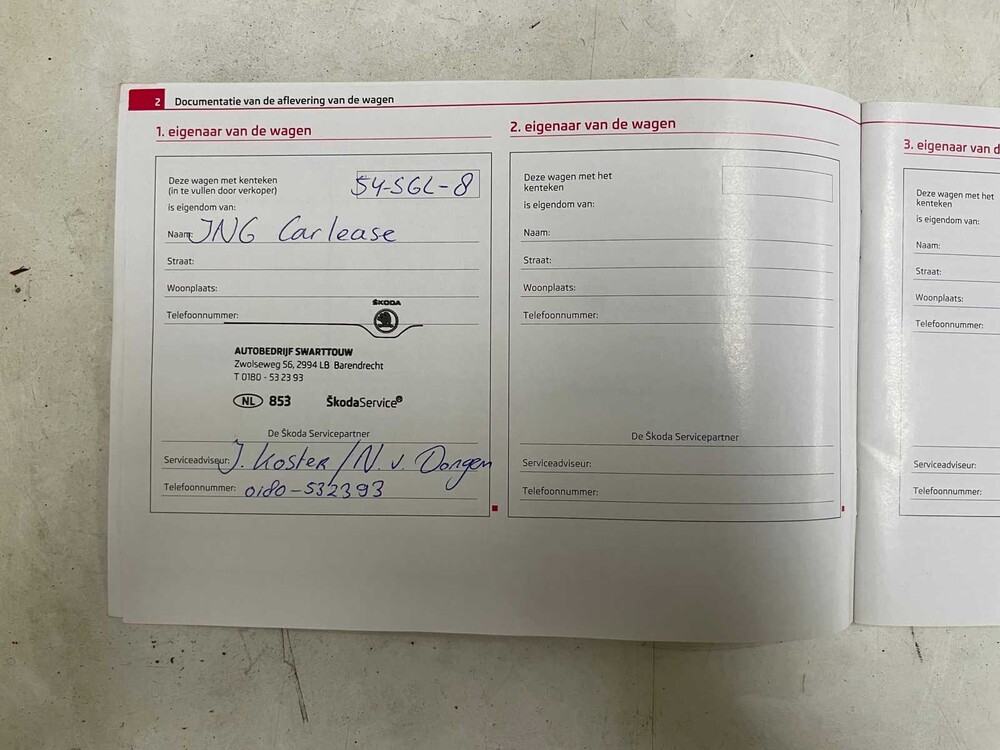 2 Documentatie van de aflevering van de wagen
1. eigenaar van de wagen
Deze wagen met kenteken
(in te vullen door verkoper)
54-SGL-8
is eigendom van:
Naam: ING Carlease
Straat:
Woonplaats:
Telefoonnummer:
ŠKODA
AUTOBEDRIJF SWARTTOUW
Zwolseweg 56, 2994 LB Barendrecht
T 0180 - 53 23 93
NL 853 ŠkodaService
De Škoda Servicepartner
Serviceadviseur: J. Koster / N. v. Dongen
Telefoonnummer: 0180-532393
2. eigenaar van de wagen
Deze wagen met het
kenteken
is eigendom van:
Naam:
Straat:
Woonplaats:
Telefoonnummer:
De Škoda Servicepartner
Serviceadviseur:
Telefoonnummer:
3. eigenaar van d
Deze wagen met het
kenteken
is eigendom van:
Naam:
Straat:
Woonplaats:
Telefoonnummer:
Serviceadviseur:
Telefoonnummer: